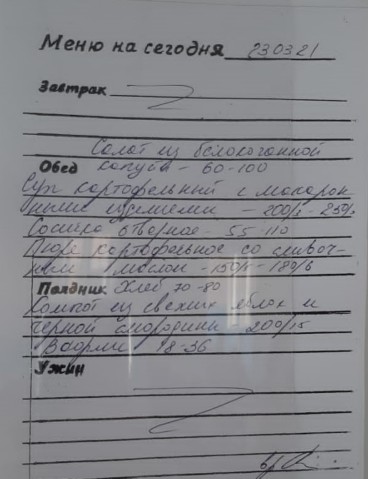 Меню на сегодня 23.03.21
Завтрак
Салат из белокочанной
Обед капусты - 60-100
Суп картофельный с макарон-
ными изделиями - 200/ - 250/
Сосиска отварное - 55-110
Пюре картофельное со сливоч-
ным маслом - 150/5 - 180/6
Полдник Хлеб 70-80
Компот из свежих яблок и
черной смородины 200/15
Вафли 18-36
Ужин